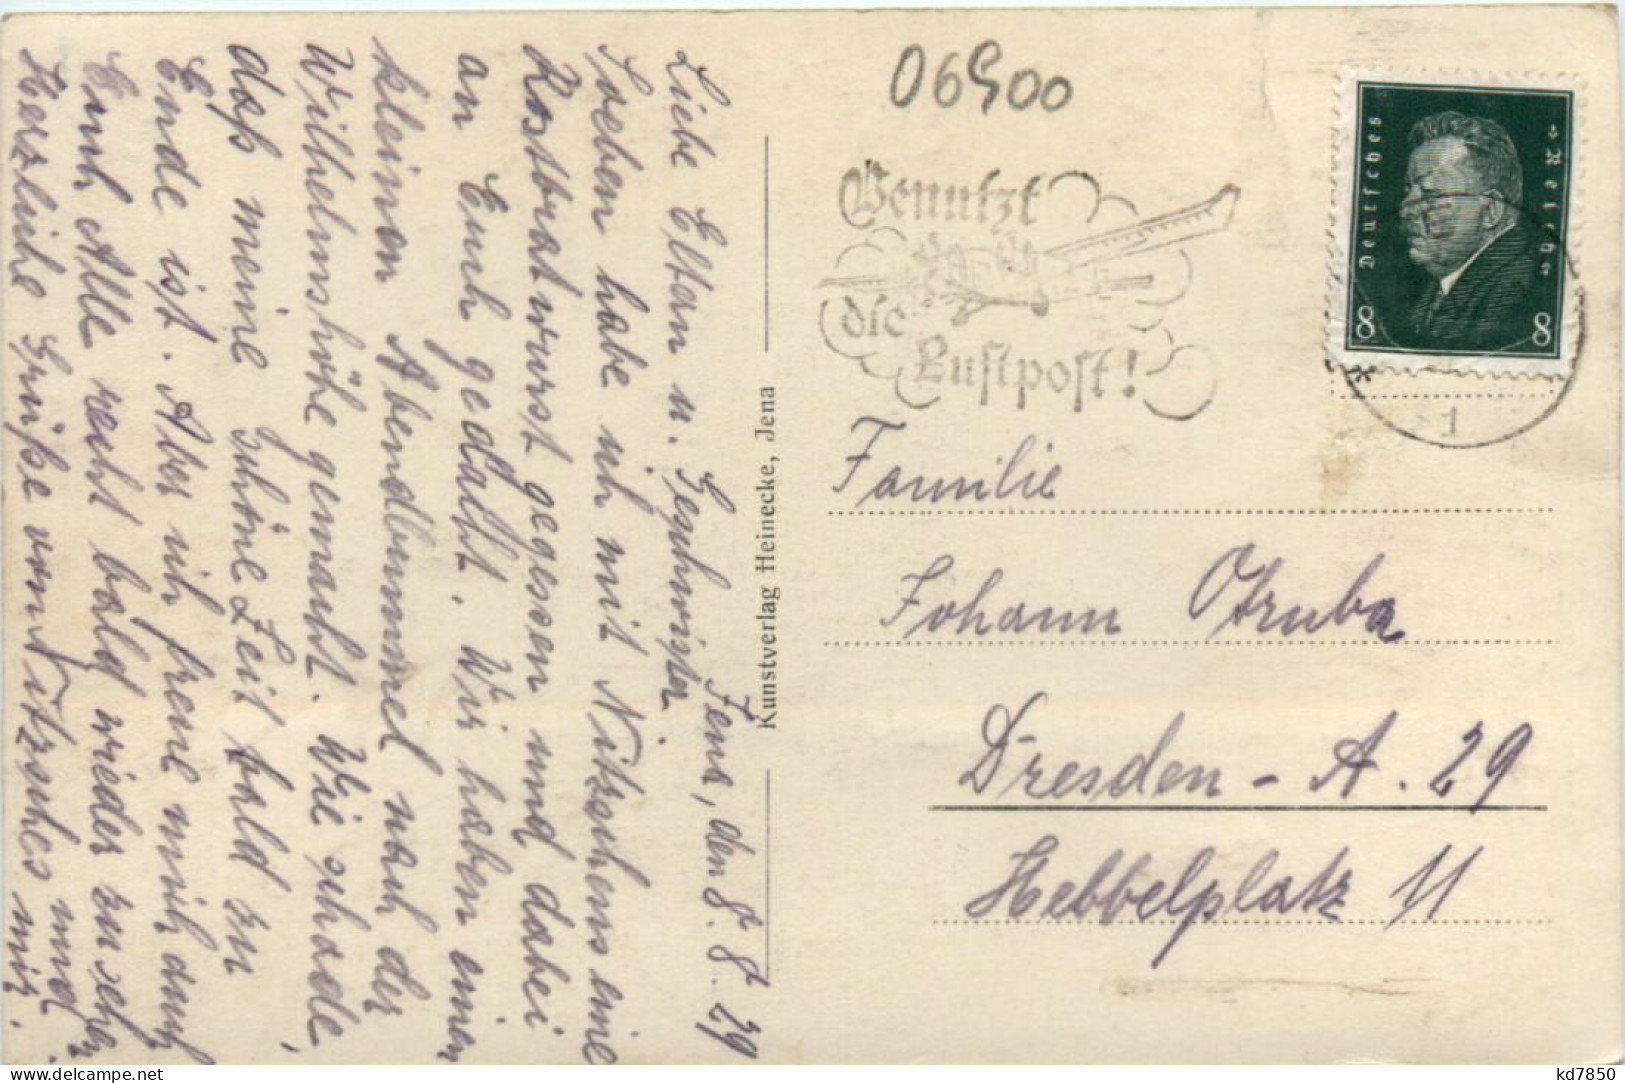 Jena, den 8.8.29
Liebe Eltern u. Geschwister
Soeben habe ich mit Nitzsches eine
Rostbratwurst gegessen und dabei
an Euch gedacht. Wir haben einen
kleinen Abendbummel nach der
Wilhelmshöhe gemacht. Wie schade,
daß meine schöne Zeit bald zu
Ende ist. Aber ich freue mich auch
Euch Alle recht bald wieder zu sehen
Herzliche Grüße von Nitzsches und
mir.
Kunstverlag Heinecke, Jena
06900
Benutzt
die
Luftpost!
Deutsches Reich
8 8
Familie
Johann Otruba
Dresden - A. 29
Hebbelplatz 11
kd7850